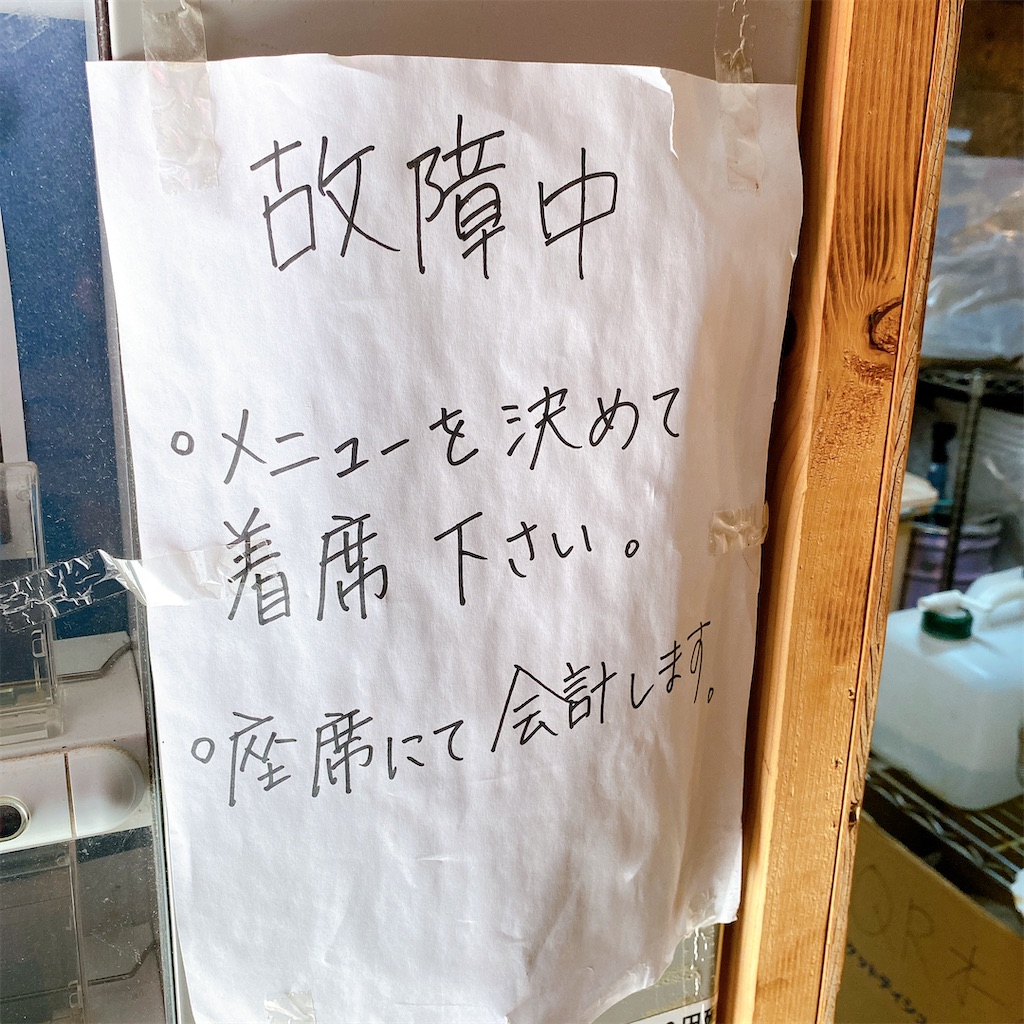 故障中
○メニューを決めて
着席下さい。
○座席にて会計します。
QRオー